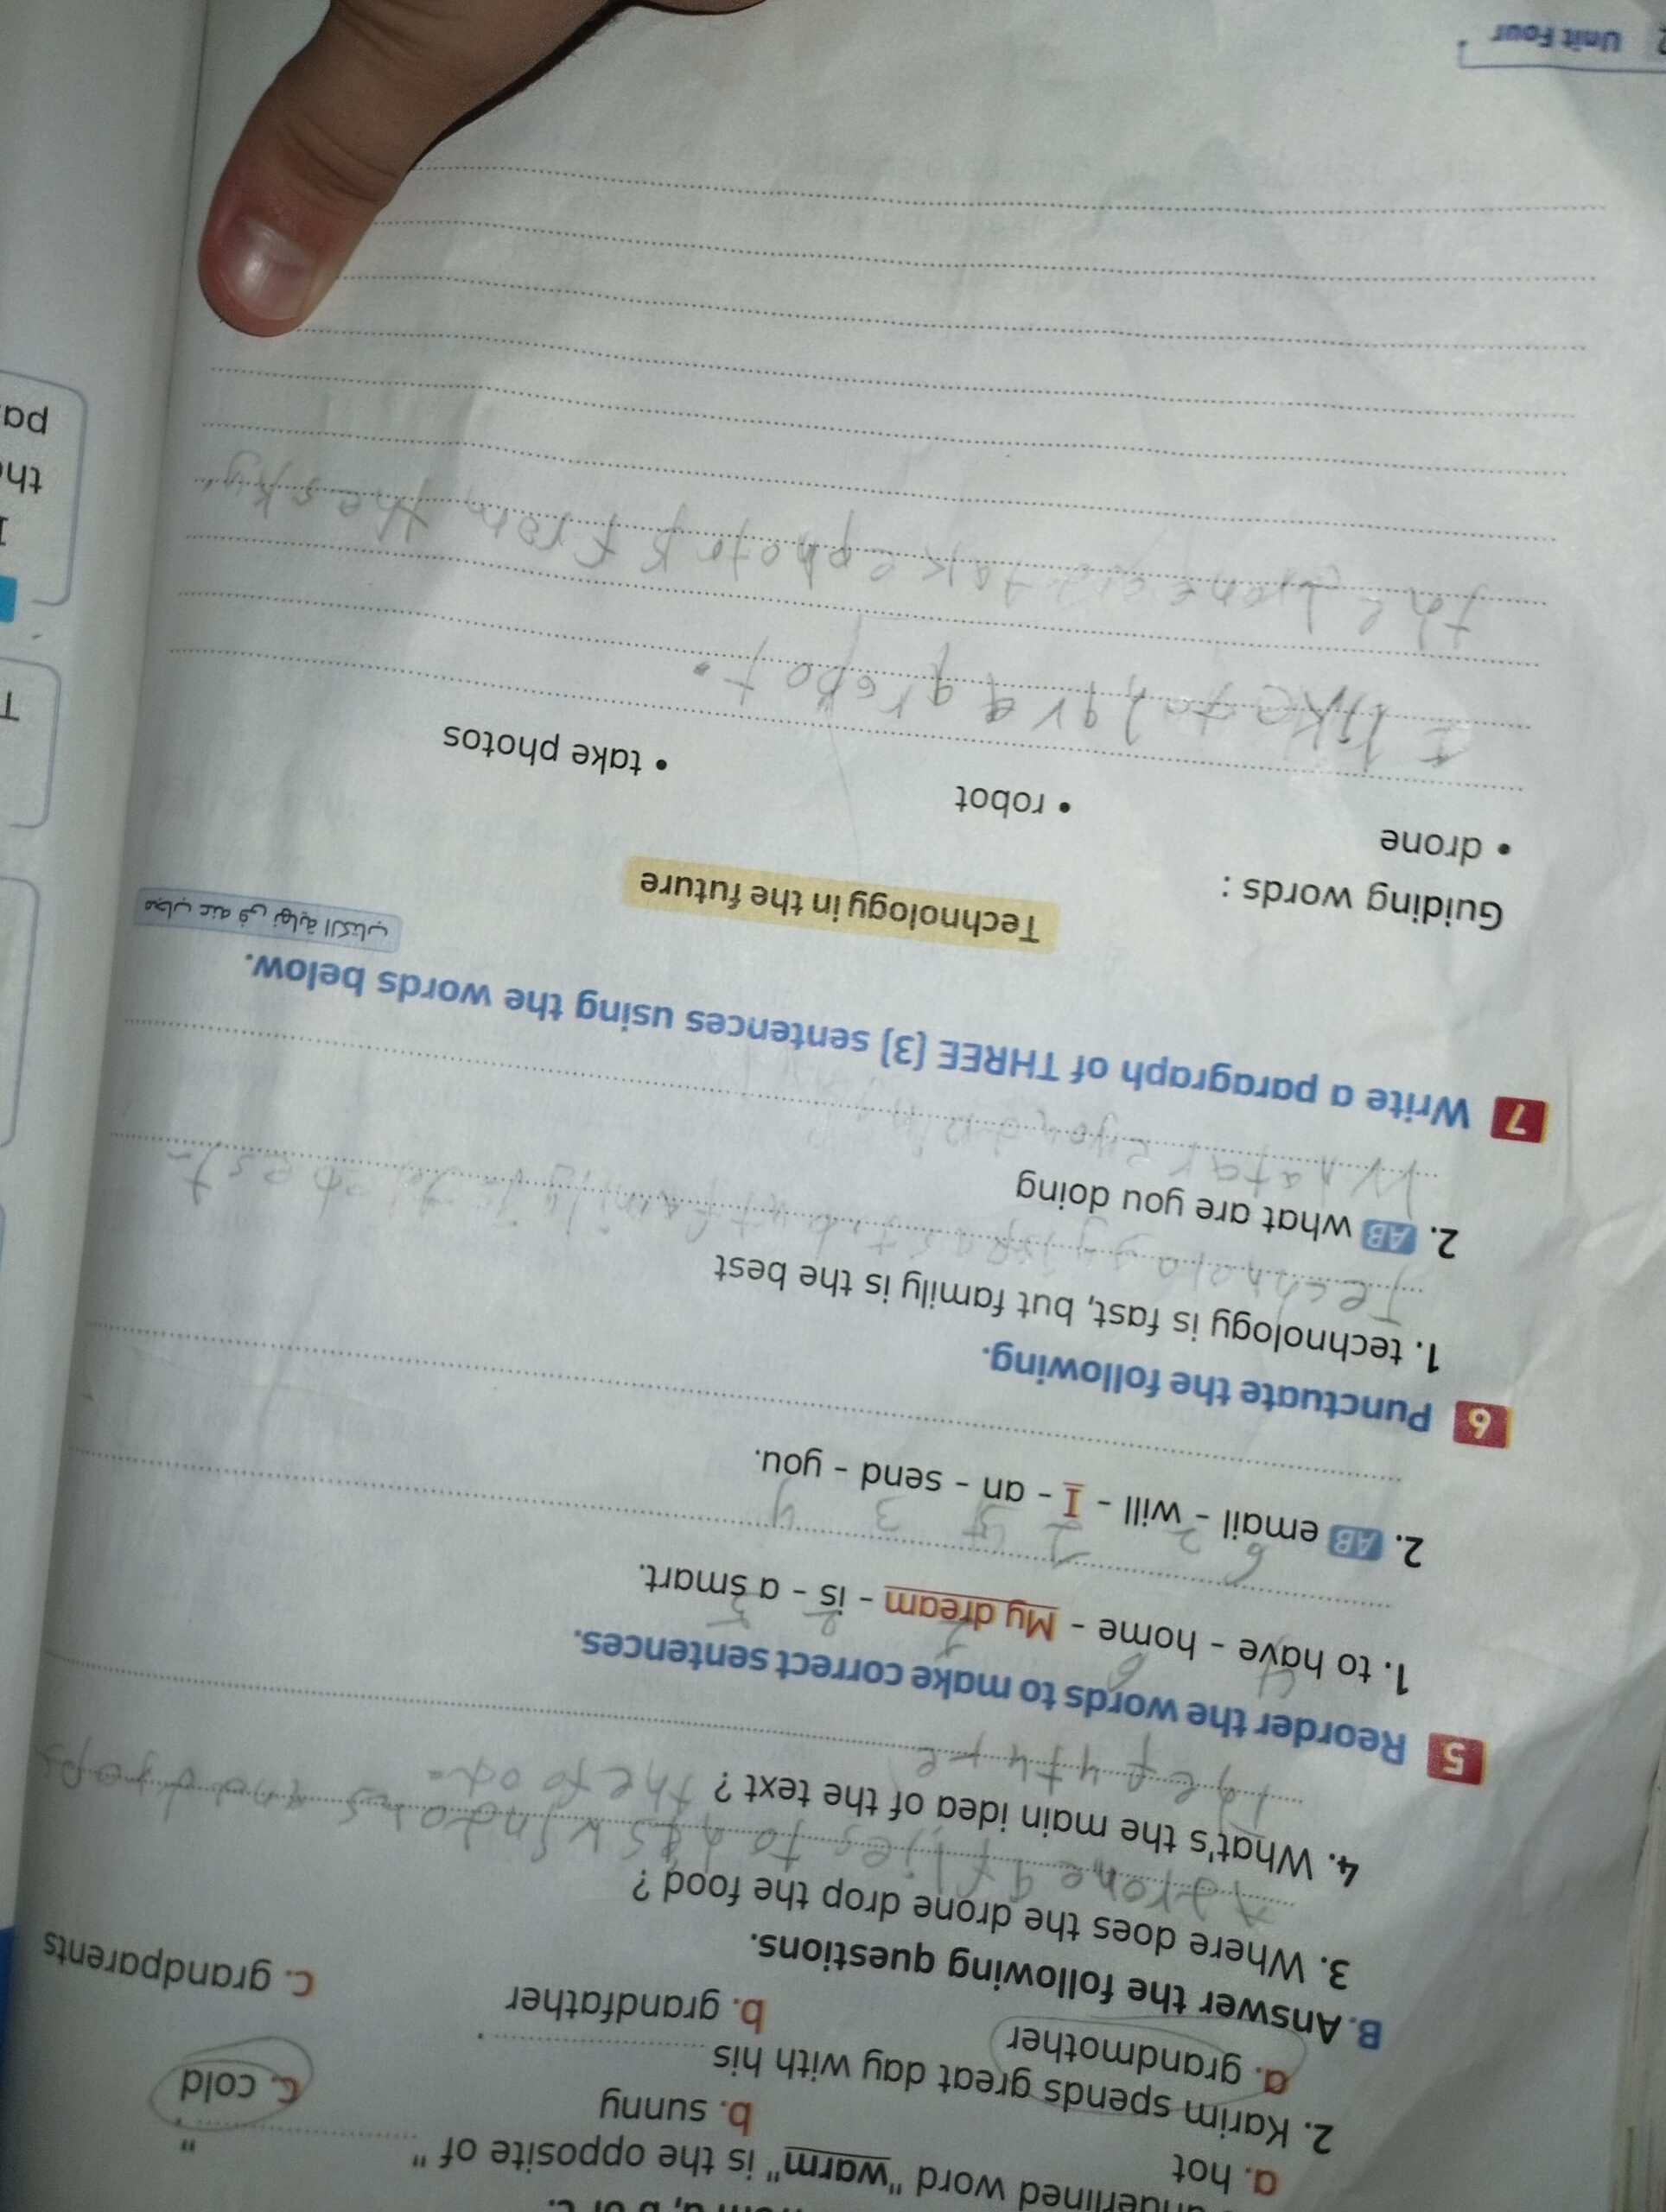 underlined word "warm" is the opposite of "
"
a. hot
b. sunny
c. cold
2. Karim spends great day with his
a. grandmother
b. grandfather
c. grandparents
B. Answer the following questions.
3. Where does the drone drop the food ?
4. What's the main idea of the text ?
the food
5 Reorder the words to make correct sentences.
1. to have - home - My dream - is - a smart.
2. AB email - will - I - an - send - you.
6 2 1 5 3 4
6 Punctuate the following.
1. technology is fast, but family is the best
Technology is fast, but family is the best
2. AB what are you doing
7 Write a paragraph of THREE (3) sentences using the words below.
مجاب عنه في نهاية الكتاب
Technology in the future
Guiding words :
• drone
• robot
• take photos
I like to
the drone take from the sky
Unit Four
the
pa